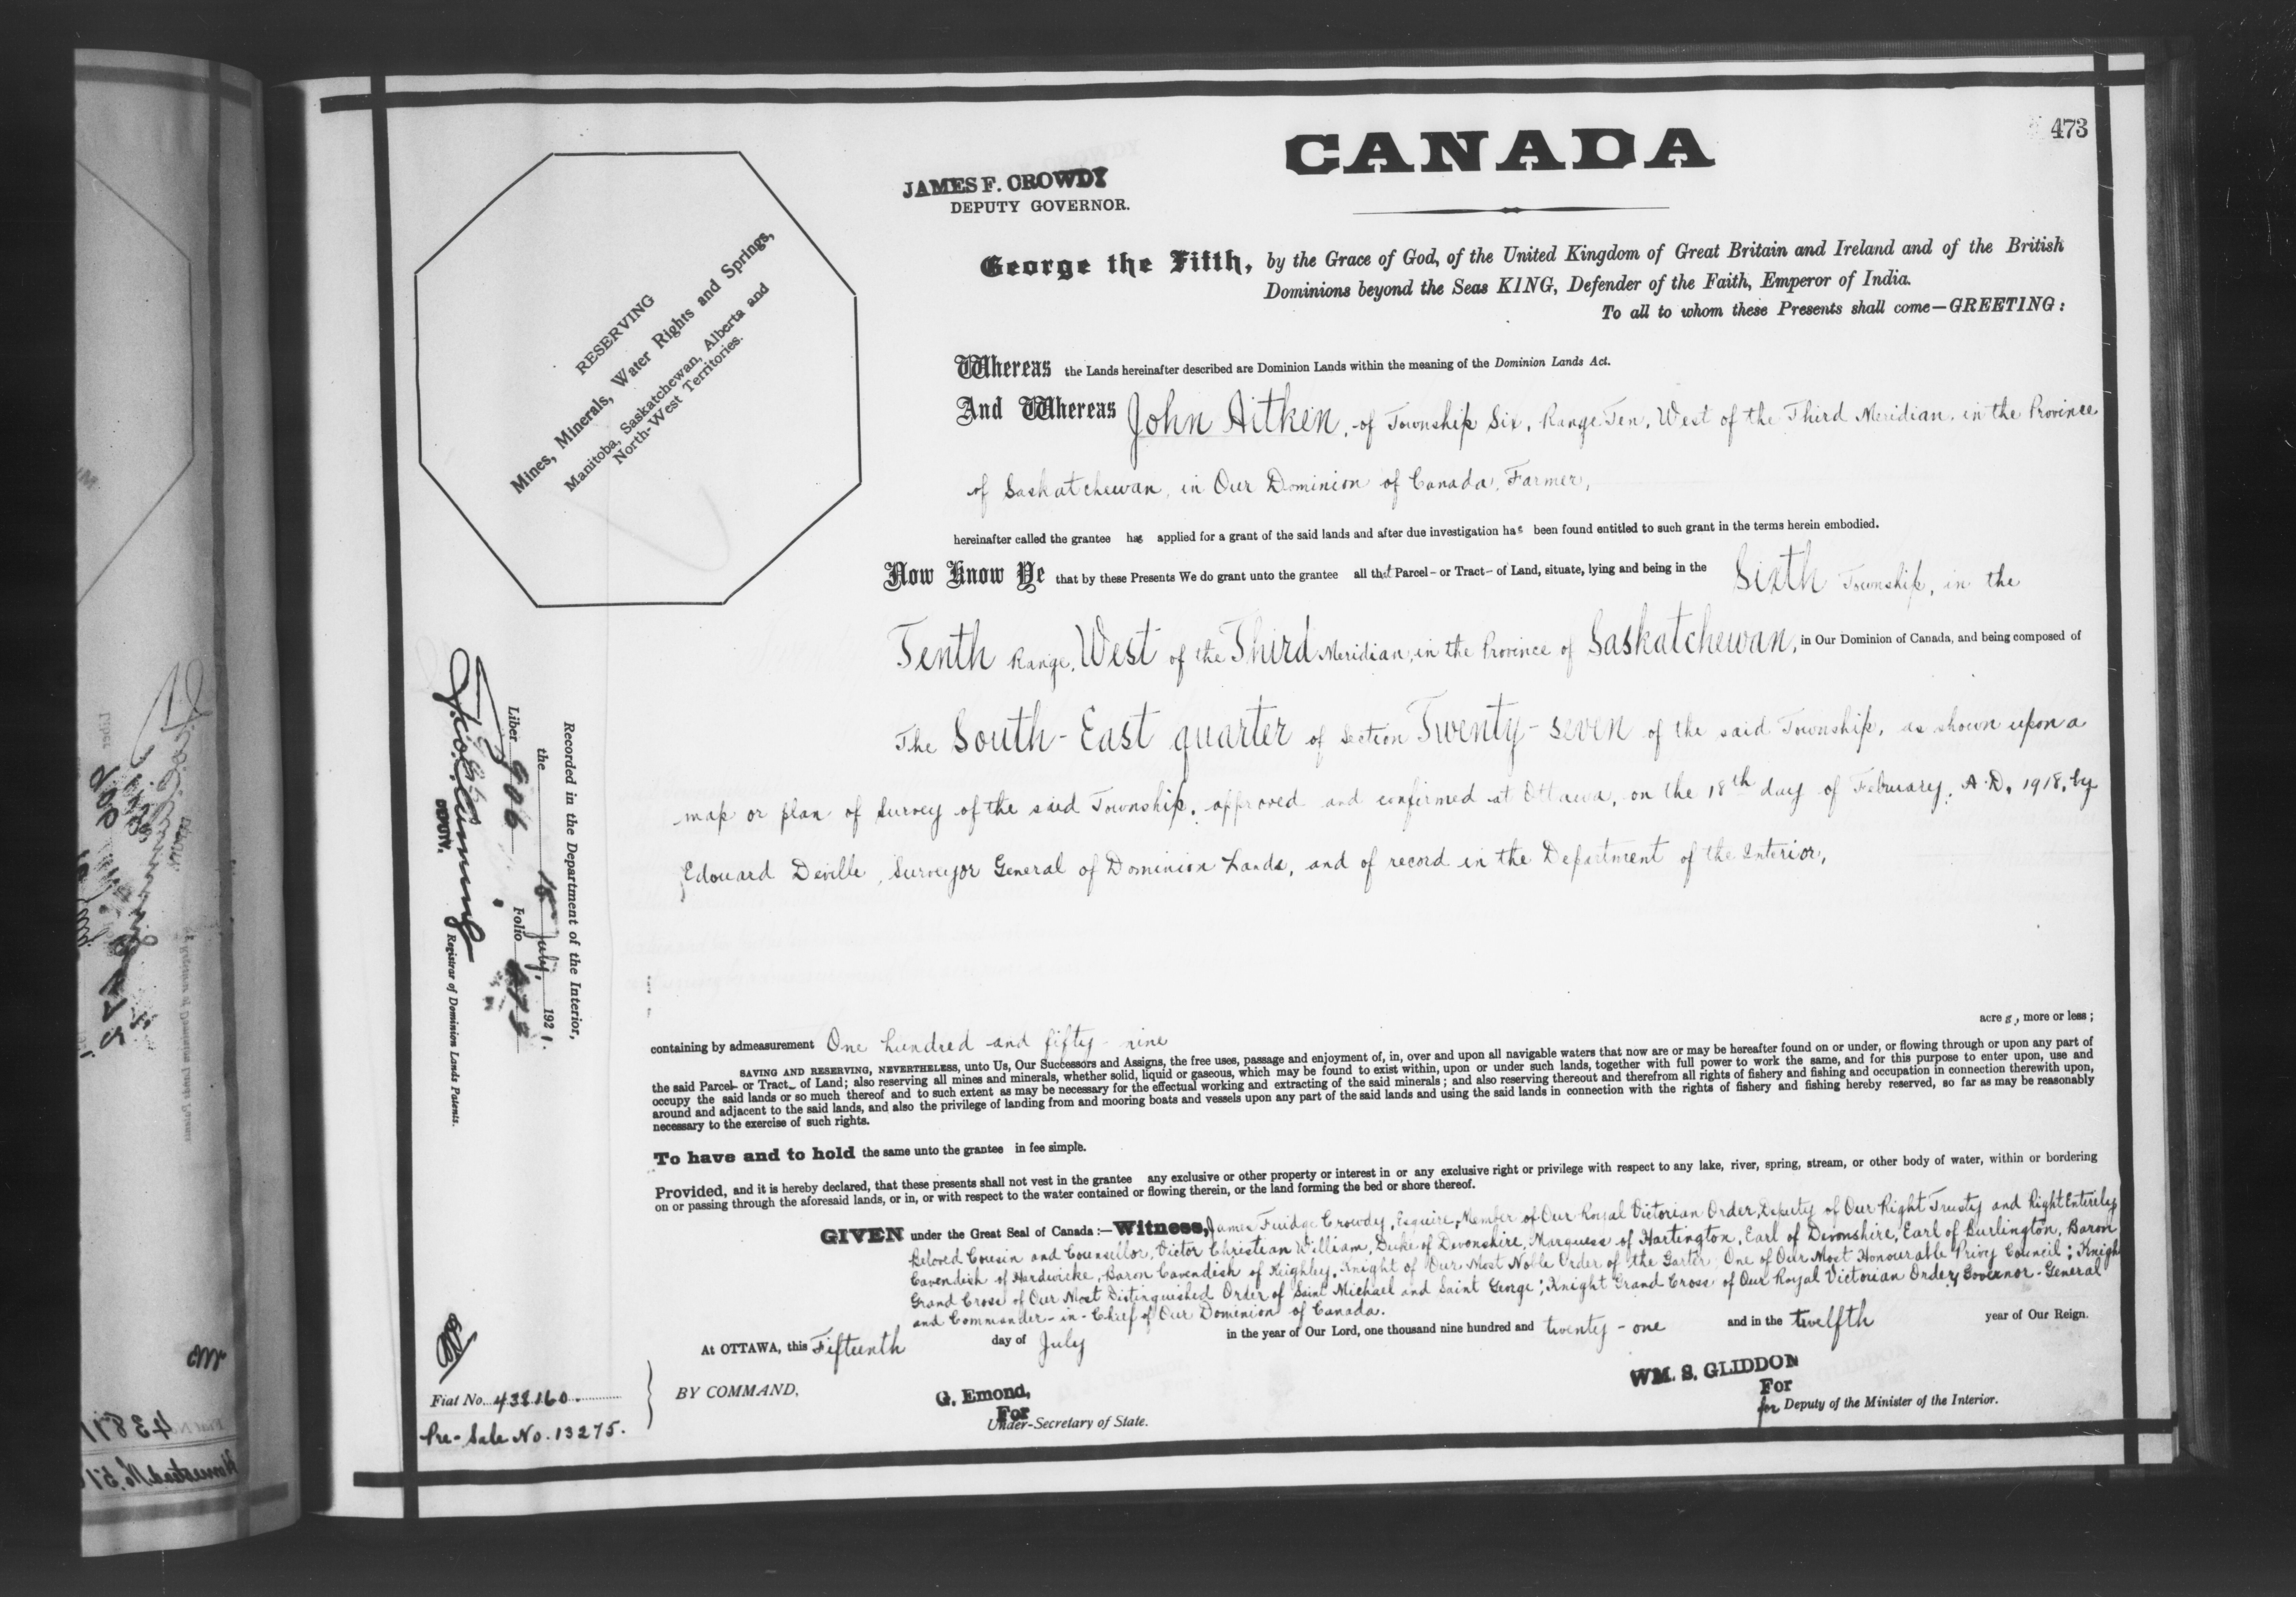 473
CANADA
JAMES F. CROWDY
DEPUTY GOVERNOR.
RESERVING
Mines, Minerals, Water Rights and Springs,
Manitoba, Saskatchewan, Alberta and
North-West Territories.
George the Fifth, by the Grace of God, of the United Kingdom of Great Britain and Ireland and of the British
Dominions beyond the Seas KING, Defender of the Faith, Emperor of India.
To all to whom these Presents shall come—GREETING:
Whereas the Lands hereinafter described are Dominion Lands within the meaning of the Dominion Lands Act.
And Whereas John Aitken, of Township Six, Range Ten, West of the Third Meridian, in the Province
of Saskatchewan, in Our Dominion of Canada, Farmer,
hereinafter called the grantee has applied for a grant of the said lands and after due investigation has been found entitled to such grant in the terms herein embodied.
Now Know Ye that by these Presents We do grant unto the grantee all that Parcel - or Tract - of Land, situate, lying and being in the Sixth Township, in the
Tenth Range, West of the Third Meridian, in the Province of Saskatchewan, in Our Dominion of Canada, and being composed of
The South-East quarter of Section Twenty-seven of the said Township, as shown upon a
map or plan of survey of the said Township, approved and confirmed at Ottawa, on the 18th day of February, A.D. 1918, by
Edouard Deville, Surveyor General of Dominion Lands, and of record in the Department of the Interior,
Recorded in the Department of the Interior,
the 15 July, 1921.
Liber 906 Folio 473
DEPUTY. Registrar of Dominion Lands Patents.
acres, more or less;
containing by admeasurement One hundred and fifty-nine
SAVING AND RESERVING, NEVERTHELESS, unto Us, Our Successors and Assigns, the free uses, passage and enjoyment of, in, over and upon all navigable waters that now are or may be hereafter found on or under, or flowing through or upon any part of
the said Parcel - or Tract - of Land; also reserving all mines and minerals, whether solid, liquid or gaseous, which may be found to exist within, upon or under such lands, together with full power to work the same, and for this purpose to enter upon, use and
occupy the said lands or so much thereof and to such extent as may be necessary for the effectual working and extracting of the said minerals; and also reserving thereout and therefrom all rights of fishery and fishing and occupation in connection therewith upon,
around and adjacent to the said lands, and also the privilege of landing from and mooring boats and vessels upon any part of the said lands and using the said lands in connection with the rights of fishery and fishing hereby reserved, so far as may be reasonably
necessary to the exercise of such rights.
To have and to hold the same unto the grantee in fee simple.
Provided, and it is hereby declared, that these presents shall not vest in the grantee any exclusive or other property or interest in or any exclusive right or privilege with respect to any lake, river, spring, stream, or other body of water, within or bordering
on or passing through the aforesaid lands, or in, or with respect to the water contained or flowing therein, or the land forming the bed or shore thereof.
GIVEN under the Great Seal of Canada:—Witness, James Fuidge Crowdy, Esquire, Member of Our Royal Victorian Order, Deputy of Our Right Trusty and Right Entirely
Beloved Cousin and Counsellor, Victor Christian William, Duke of Devonshire, Marquess of Hartington, Earl of Devonshire, Earl of Burlington, Baron
Cavendish of Hardwicke, Baron Cavendish of Keighley, Knight of Our Most Noble Order of the Garter; One of Our Most Honourable Privy Council; Knight
Grand Cross of Our Most Distinguished Order of Saint Michael and Saint George; Knight Grand Cross of Our Royal Victorian Order; Governor-General
and Commander-in-Chief of Our Dominion of Canada.
At OTTAWA, this Fifteenth day of July in the year of Our Lord, one thousand nine hundred and twenty-one and in the twelfth year of Our Reign.
BY COMMAND,
G. Emond,
For
Under-Secretary of State.
WM. S. GLIDDON
For
for Deputy of the Minister of the Interior.
Fiat No. 438160.
Pre-Sale No. 13275.